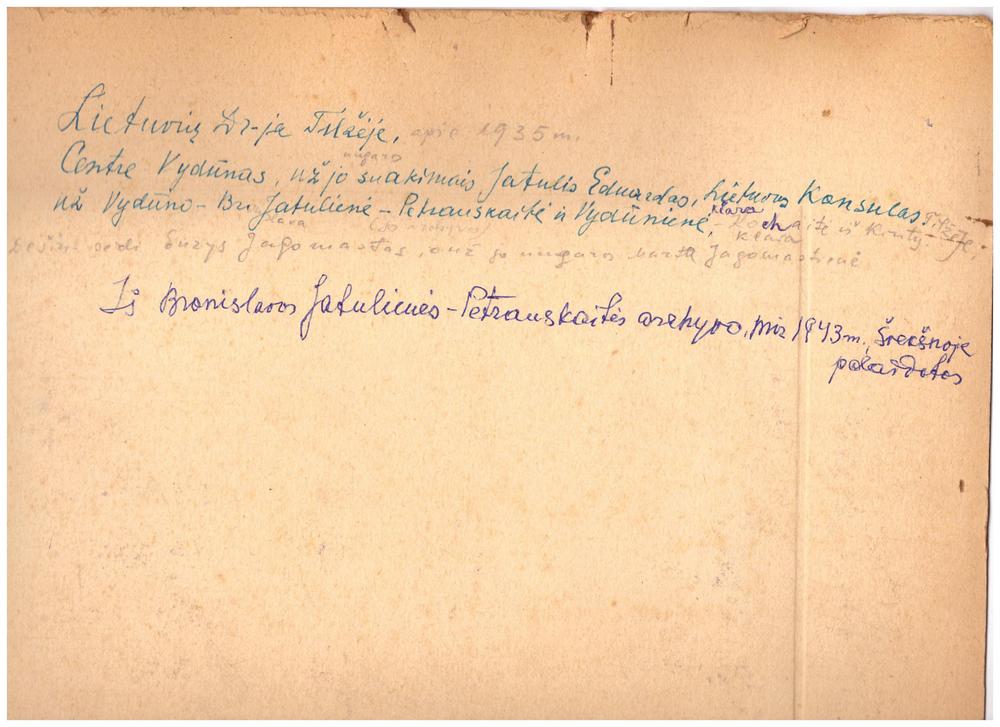 Lietuvių Dr-ja Tilžėje, apie 1935 m.
nugaros
Centre Vydūnas, už jo snakimais Jatulis Eduardas, Lietuvos Konsulas Tilžėje;
už Vydūno - Bro Jatulienė - Petrauskaitė ir Vydūnienė, Klara
slava (jo archyvas) - Kochaitė iš Kinty-
Klara
sėdi Enzys Jagomastas, už jo nugaros Marta Jagomastienė
Iš Bronislavos Jatulienės - Petrauskaitės archyvo, mir 1943 m., Švėkšnoje
palaidotos